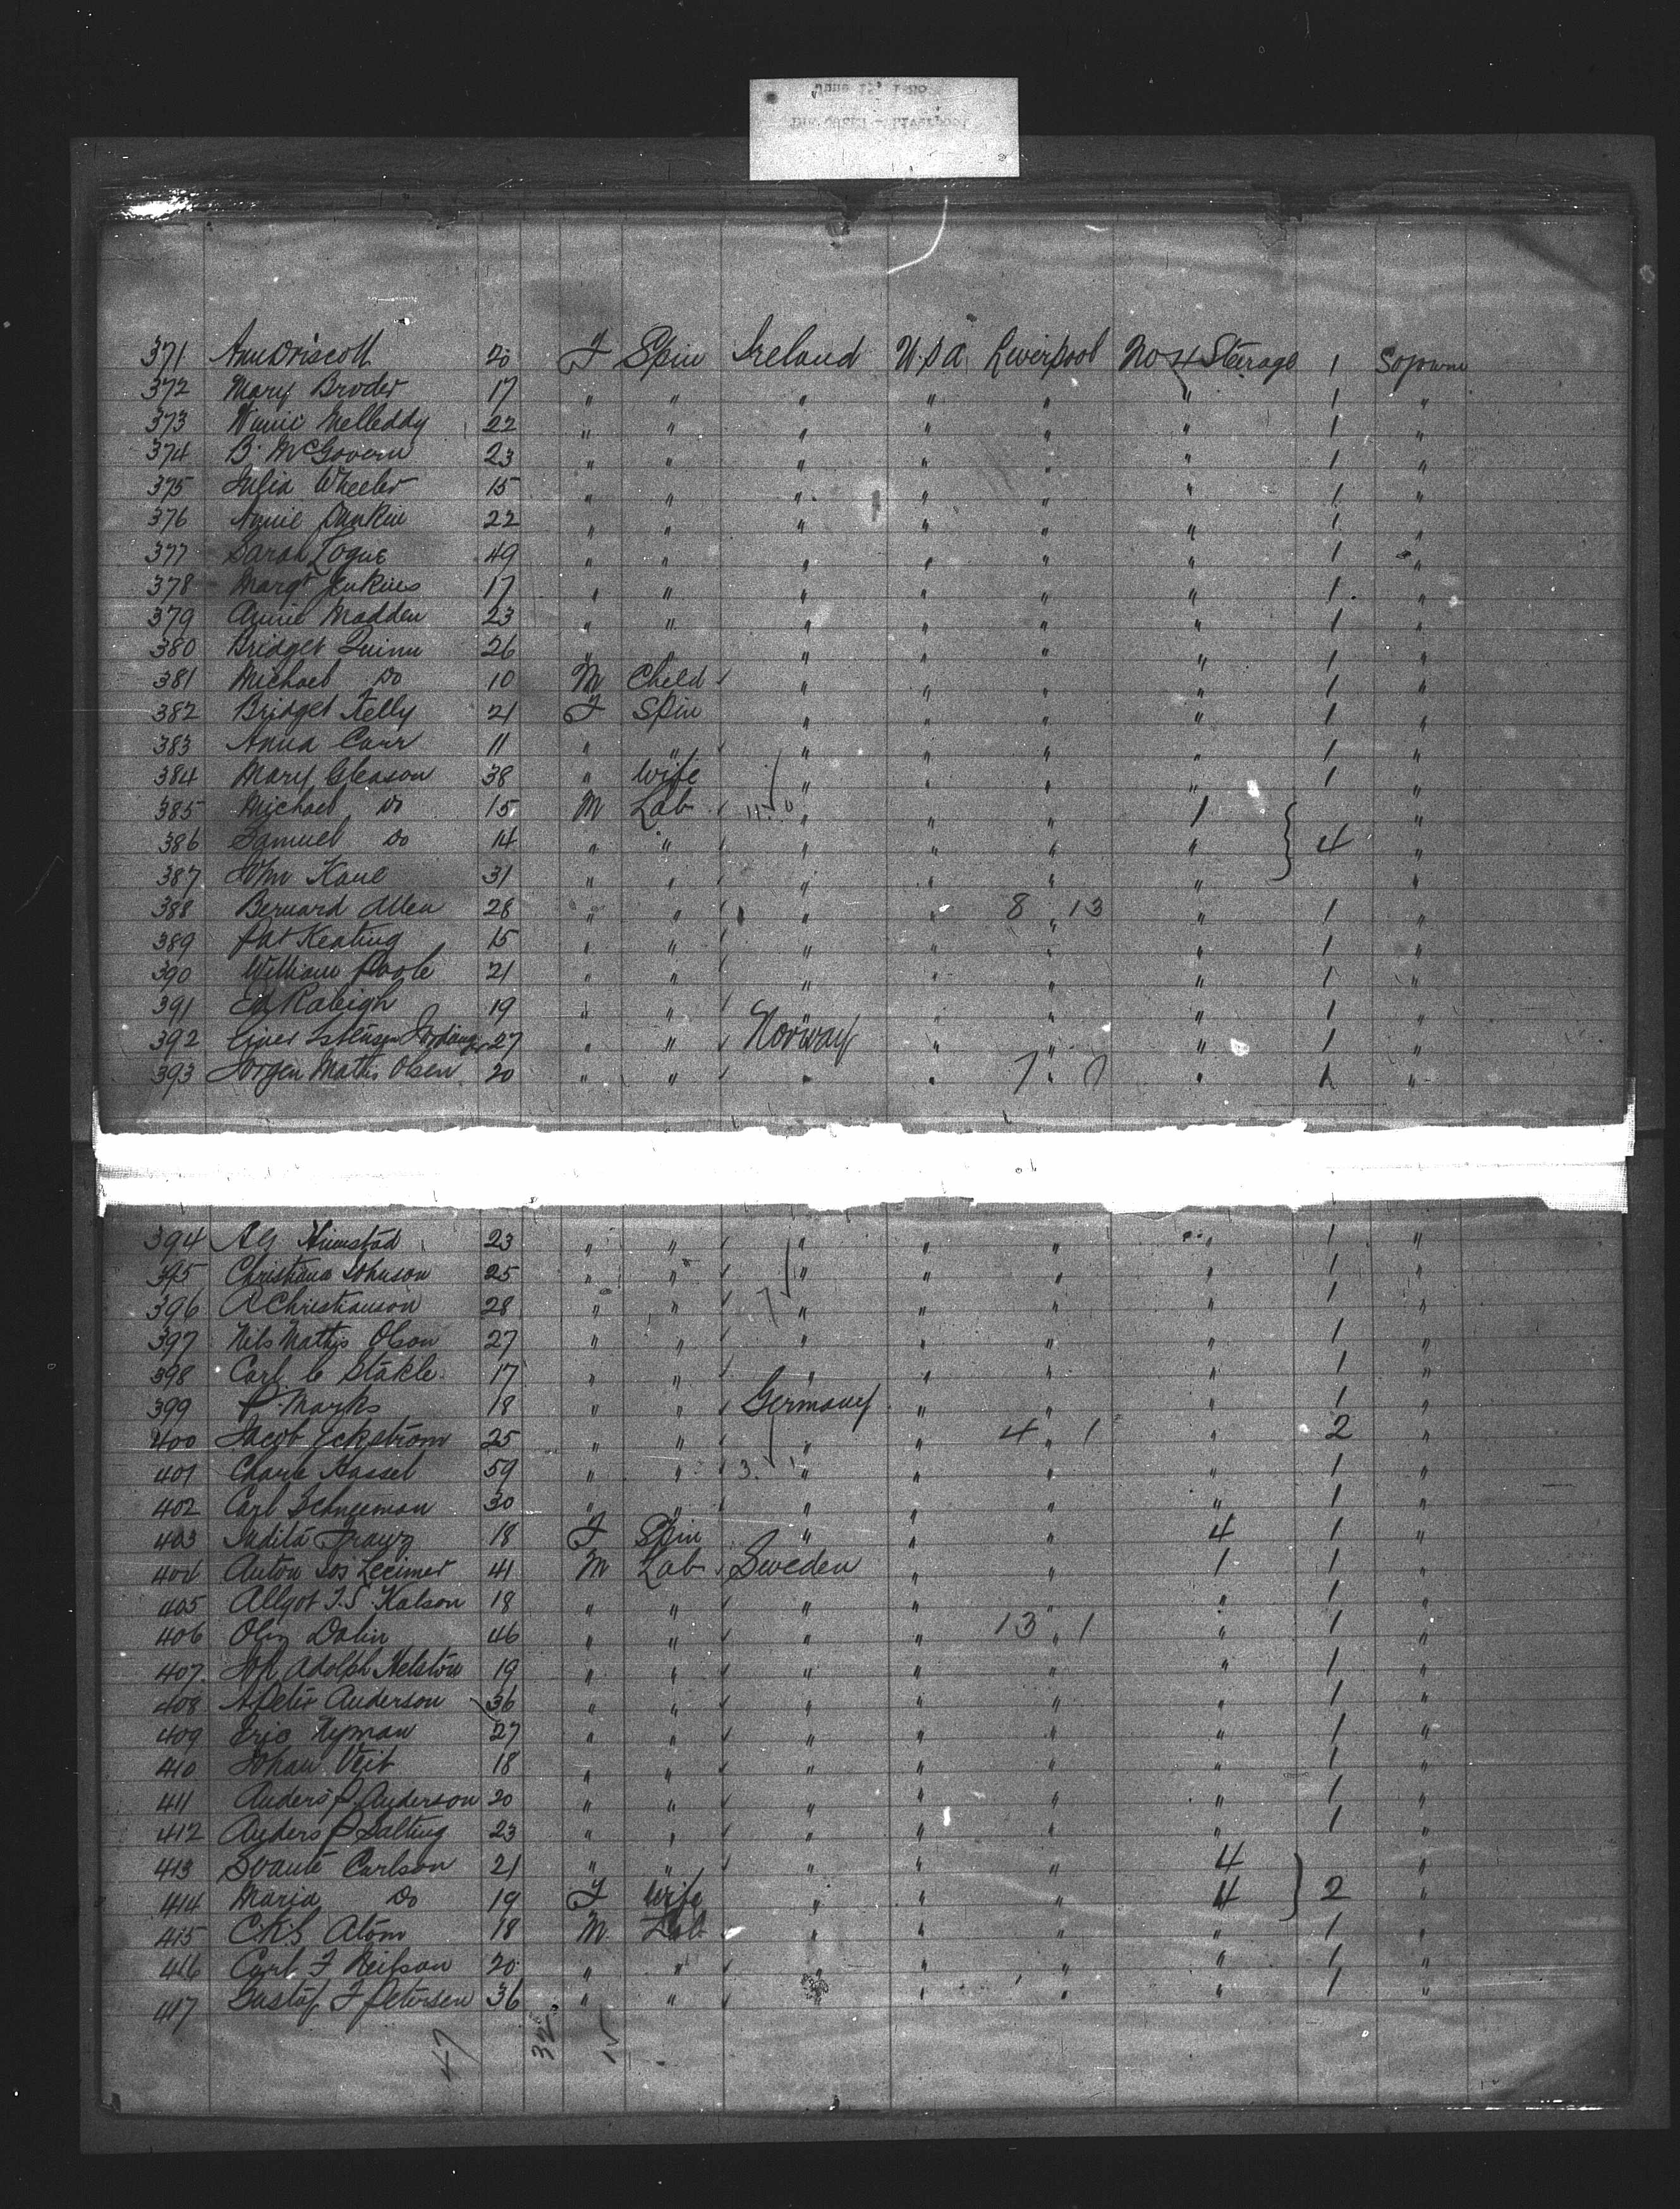 371 Ann Driscoll 20 F Spin Ireland U.S.A Liverpool No 4 Steerage 1 Sojourn
372 Mary Broder 17 " " " " " " 1 "
373 22 " " " " " " 1 "
374 B. McGovern 23 " " " " " " 1 "
375 Julia Wheeler 15 " " " " " " 1 "
376 Annie 22 " " " " " " 1 "
377 Sarah Logue 49 " " " " " " 1 "
378 Margt Jenkins 17 " " " " " " 1 "
379 Annie Madden 23 " " " " " " 1 "
380 Bridget Quinn 26 " " " " " 1 "
381 Michael Do 10 M Child " " " " 1 "
382 Bridget Kelly 21 F Spin " " " " 1 "
383 Anna Carr 11 " " " " " " 1 "
384 Mary Gleason 38 " Wife " " " " 1 "
385 Michael Do 15 M Lab " " " 1 "
386 Samuel Do 14 " " " " " " 4 "
387 John Kane 31 " " " " " " "
388 Bernard Allen 28 " " " " 8 " 13 " 1 "
389 Pat Keating 15 " " " " " " 1 "
390 William Poole 21 " " " " " " 1 "
391 Ed Raleigh 19 " " " " " " 1 "
392 27 " " Norway " " " 1 "
393 Jorgen Mathis Olsen 20 " " " " 7 " 0 " 1 "
394 23 " " " " " " 1 "
395 Christiana Johnson 25 " " " " " " 1 "
396 A Christianson 28 " " " " " " 1 "
397 Nils Mathis Olson 27 " " " " " " 1 "
398 Carl C Stakle 17 " " " " " " 1 "
399 P. Marks 18 " " Germany " " " 1 "
400 Jacob Eckstrom 25 " " " " 4 " 1 " 2 "
401 Charle Hassel 59 " " 3 " " " " 1 "
402 Carl Schneeman 30 " " " " " " 1 "
403 18 F Spin " " " 4 1 "
404 Anton Jos 41 M Lab Sweden " " 1 1 "
405 Allgot J.S. Kalson 18 " " " " " " 1 "
406 Olin Dalin 46 " " " " 13 " 1 " 1 "
407 Joh Adolph Helstöw 19 " " " " " " 1 "
408 A Peter Anderson 36 " " " " " " 1 "
409 Eric Nyman 27 " " " " " " 1 "
410 Johan Veit 18 " " " " " " 1 "
411 Anders P. Anderson 20 " " " " " " 1 "
412 Anders P Salting 23 " " " " " " 1 "
413 Svante Carlson 21 " " " " " 4 "
414 Maria Do 19 F Wife " " " 4 2 "
415 C.K.S Atom 18 M Lab " " " " 1 "
416 Carl F Neilson 20 " " " " " " 1 "
417 Gustaf F Petersen 36 " " " " " " 1 "
47 32 15